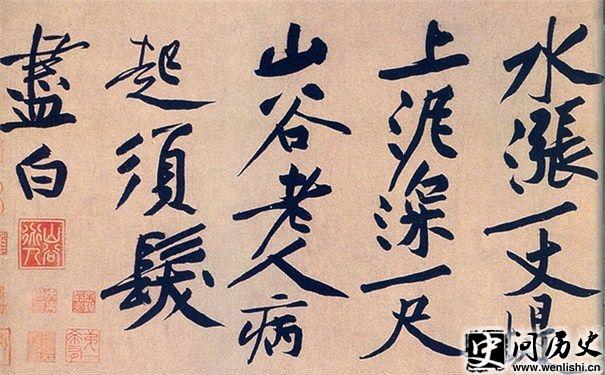 水漲一丈
上泥深一尺
山谷老人病
起須髮
盡白
山谷道人
史问历史
www.wenlishi.cn